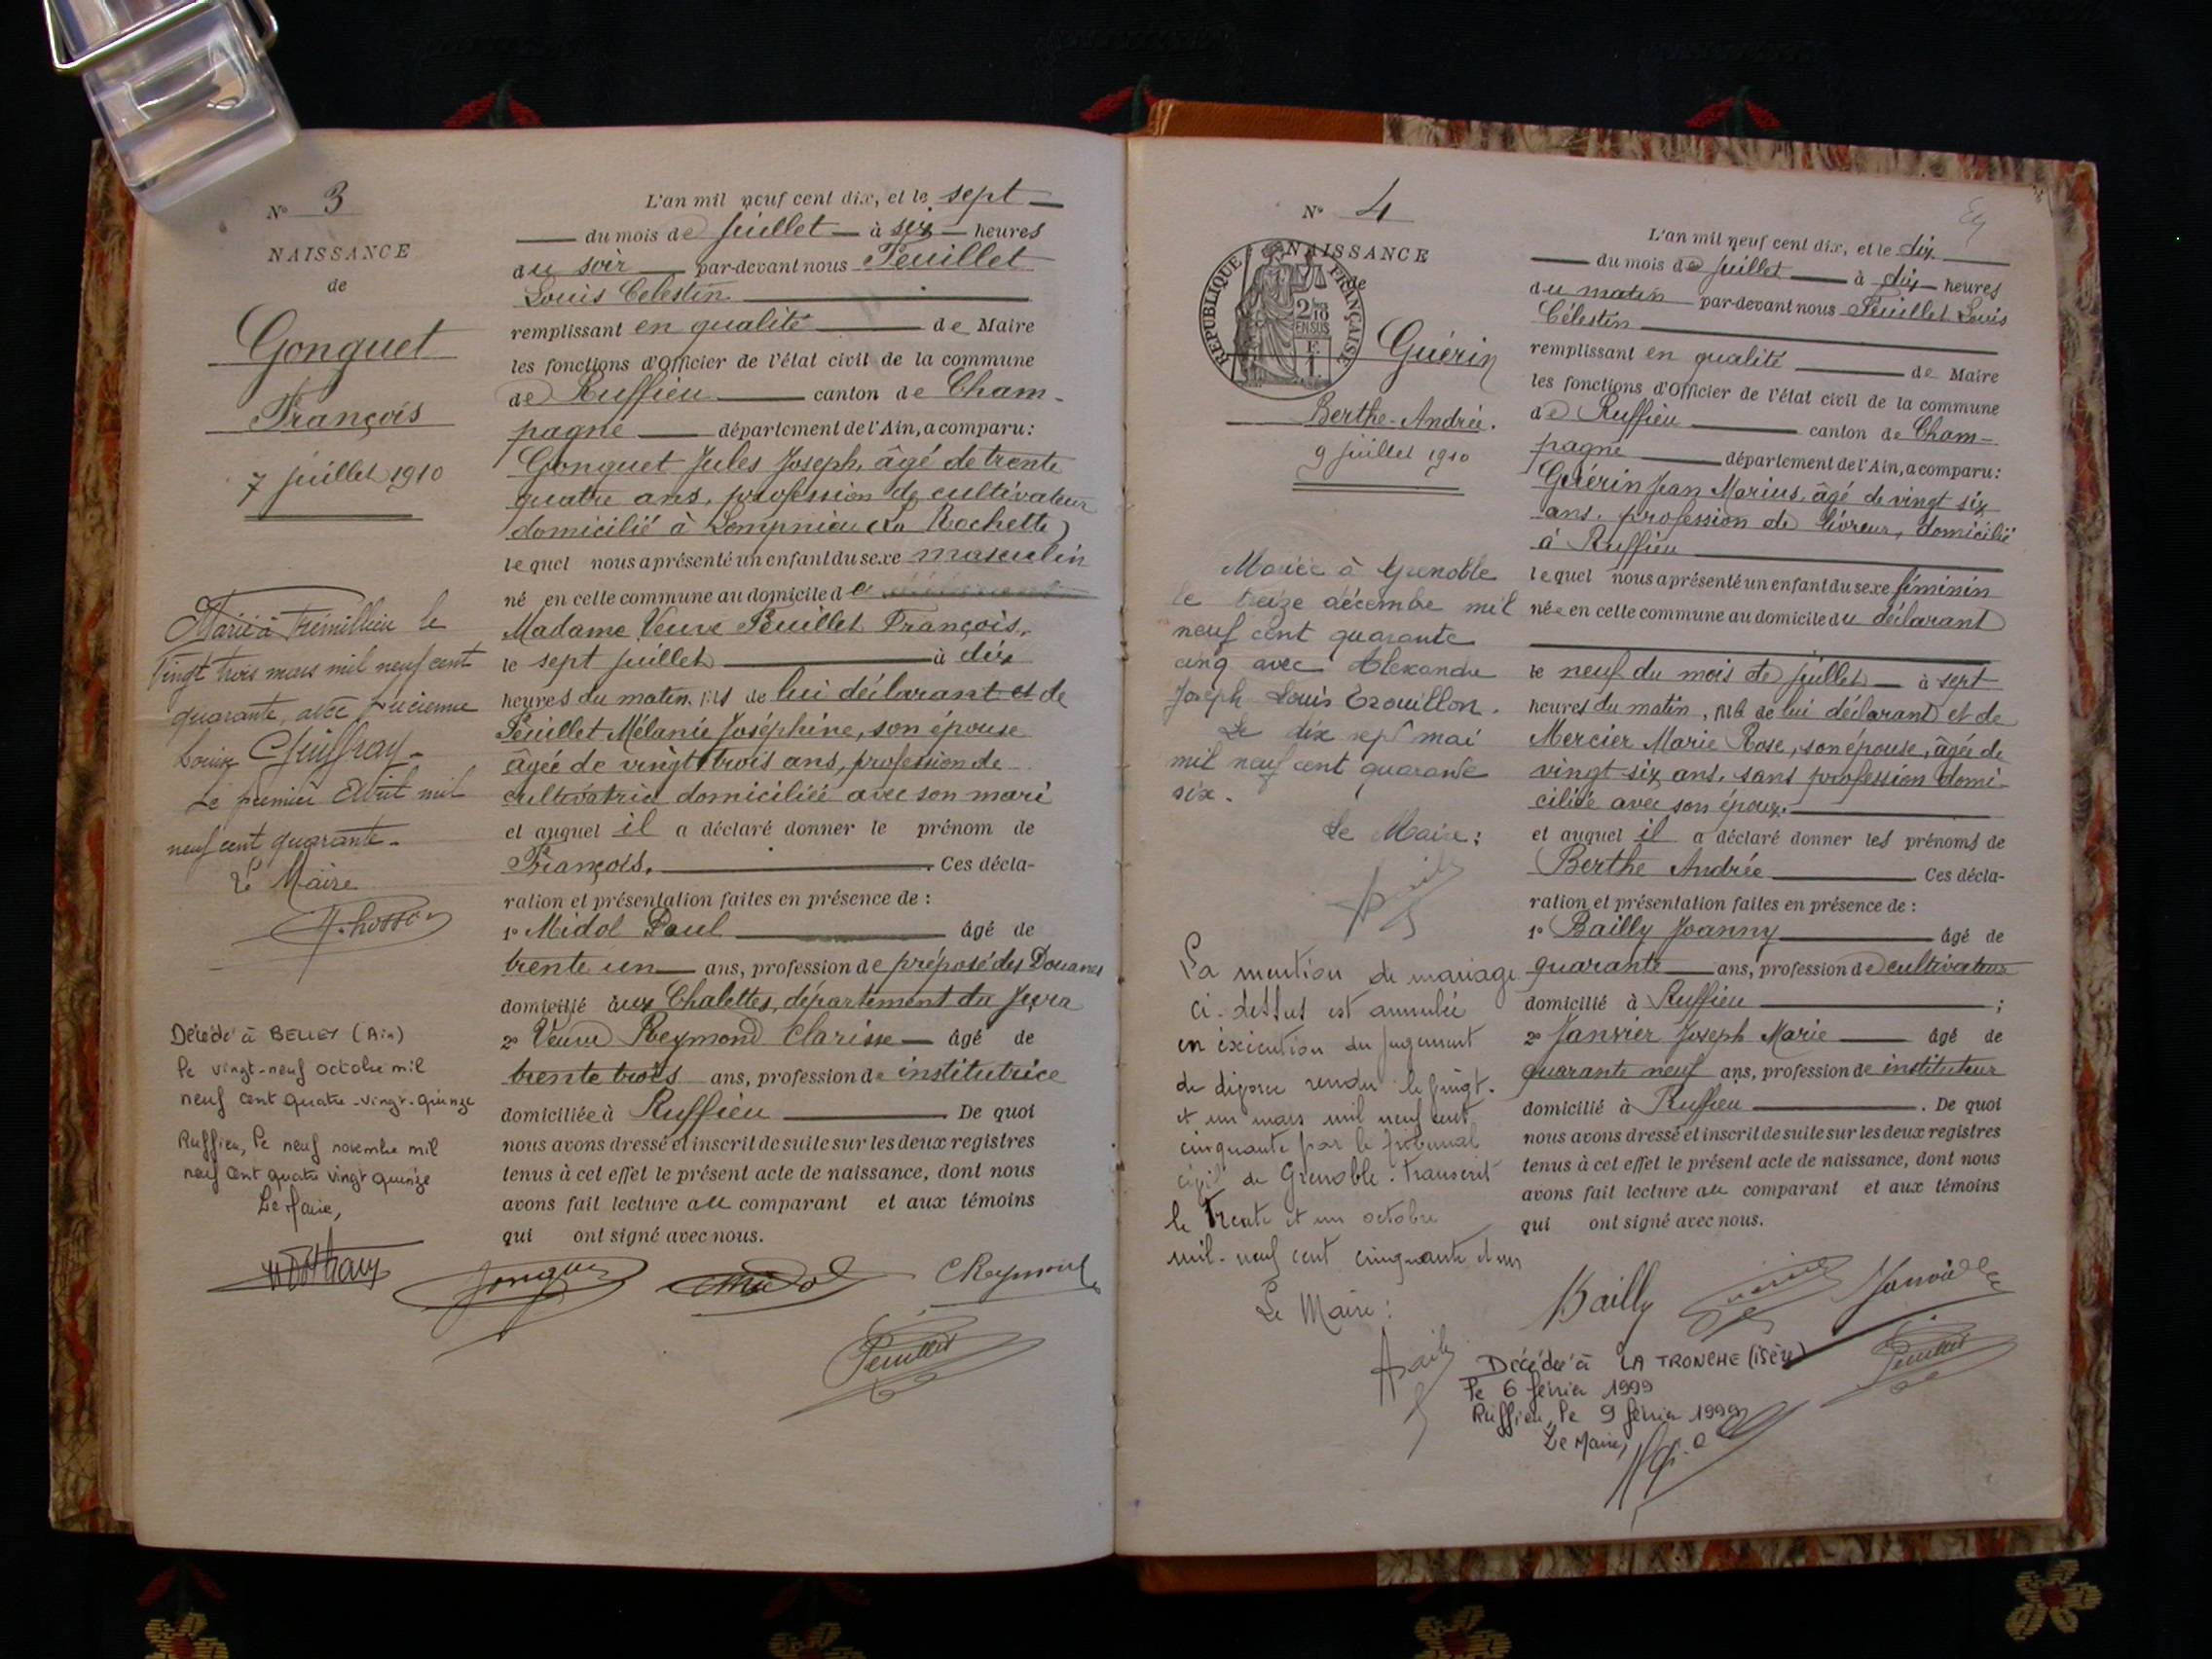 N° 3
NAISSANCE
de
Gonguet
François
7 juillet 1910
Marié à Prémillieu le
vingt trois mars mil neuf cent
quarante, avec Lucienne
Louise
Le premier Avril mil
neuf cent quarante.
Le Maire
Décédé à BELLEY (Ain)
le vingt-neuf octobre mil
neuf cent quatre-vingt-quinze
Ruffieu, le neuf novembre mil
neuf cent quatre vingt quinze
Le Maire,
L'an mil neuf cent dix, et le sept
du mois de juillet à six heures
du soir par-devant nous Peuillet
Louis Célestin
remplissant en qualité de Maire
les fonctions d'Officier de l'état civil de la commune
de Ruffieu canton de Cham-
pagne département de l'Ain, a comparu:
Gonguet Jules Joseph, âgé de trente
quatre ans, profession de cultivateur
domicilié à Lompnieu (La Rochette)
lequel nous a présenté un enfant du sexe masculin
né en cette commune au domicile de
Madame Veuve Peuillet François,
le sept juillet à dix
heures du matin, fils de lui déclarant et de
Peuillet Mélanie Joséphine, son épouse
âgée de vingt trois ans, profession de
cultivatrice domiciliée avec son mari
et auquel il a déclaré donner le prénom de
François. Ces décla-
ration et présentation faites en présence de :
1° Midol Paul âgé de
trente un ans, profession de préposé des Douanes
domicilié aux Chalettes, département du Jura
2° Veuve Reymond Clarisse âgé de
trente trois ans, profession de institutrice
domiciliée à Ruffieu De quoi
nous avons dressé et inscrit de suite sur les deux registres
tenus à cet effet le présent acte de naissance, dont nous
avons fait lecture au comparant et aux témoins
qui ont signé avec nous.
Gonguet Midol CReymond
Peuillet
N° 4
NAISSANCE
de
REPUBLIQUE FRANÇAISE
2/10
EN SUS
F.
1.
Guérin
Berthe-Andrée.
9 juillet 1910
Mariée à Grenoble
le treize décembre mil
neuf cent quarante
cinq avec Alexandre
Joseph Louis Trouillon.
Le dix sept mai
mil neuf cent quarante
six.
Le Maire:
La mention de mariage
ci-dessus est annulée
en exécution du jugement
de divorce rendu le vingt.
et un mars mil neuf cent
cinquante par le tribunal
civil de Grenoble. Transcrit
le Trente et un octobre
mil-neuf cent cinquante et un
Le Maire:
L'an mil neuf cent dix, et le dix
du mois de juillet à dix heures
du matin par-devant nous Peuillet Louis
Célestin
remplissant en qualité de Maire
les fonctions d'Officier de l'état civil de la commune
de Ruffieu canton de Cham-
pagne département de l'Ain, a comparu:
Guérin Jean Marius, âgé de vingt six
ans, profession de livreur, domicilié
à Ruffieu
lequel nous a présenté un enfant du sexe féminin
née en cette commune au domicile du déclarant
le neuf du mois de juillet à sept
heures du matin, fille de lui déclarant et de
Mercier Marie Rose, son épouse, âgée de
vingt-six ans, sans profession domi-
ciliée avec son époux.
et auquel il a déclaré donner les prénoms de
Berthe Andrée Ces décla-
ration et présentation faites en présence de :
1° Bailly Joanny âgé de
quarante ans, profession de cultivateur
domicilié à Ruffieu ;
2° Janvier Joseph Marie âgé de
quarante neuf ans, profession de instituteur
domicilié à Ruffieu . De quoi
nous avons dressé et inscrit de suite sur les deux registres
tenus à cet effet le présent acte de naissance, dont nous
avons fait lecture au comparant et aux témoins
qui ont signé avec nous.
Bailly Guérin Janvier
Peuillet
Décédée à LA TRONCHE (isère)
le 6 février 1999
Ruffieu, le 9 février 1999
Le Maire,